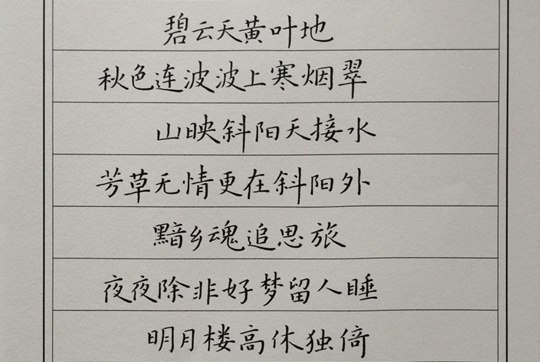 碧云天黄叶地
秋色连波波上寒烟翠
山映斜阳天接水
芳草无情更在斜阳外
黯乡魂追思旅
夜夜除非好梦留人睡
明月楼高休独倚